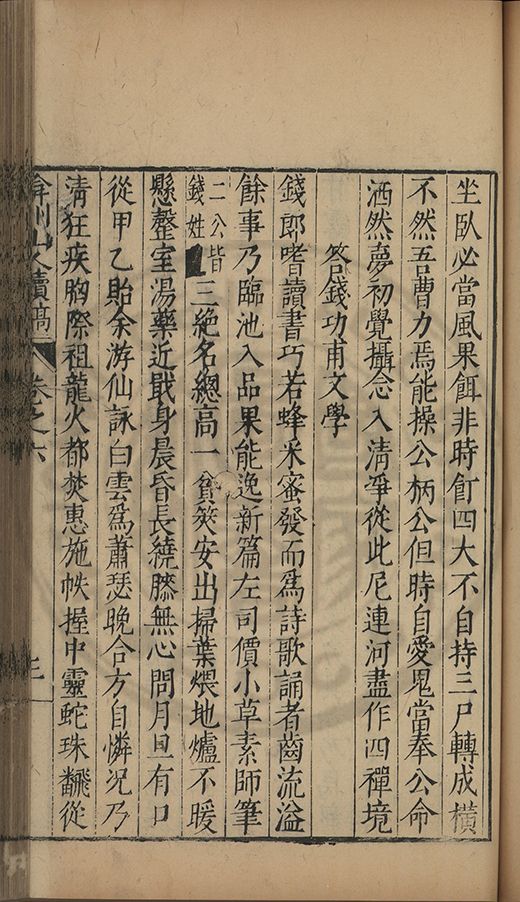 坐臥必當風果餌非時飣四大不自持三尸轉成橫
不然吾曹力焉能操公柄公但時自愛鬼當奉公命
洒然夢初覺攝念入清凈從此尼連河盡作四禪境
答錢功甫文學
錢郎嗜讀書巧若蜂采蜜發而爲詩歌誦者齒流溢
餘事乃臨池入品果能逸新篇左司價小草素師筆
二公皆
錢姓
三絶名總高一貧筴安出掃葉煨地爐不暖
懸罄室湯藥近戢身晨昏長繞膝無心問月旦有口
從甲乙貽余游仙詠白雲爲蕭瑟晚合方自憐况乃
清狂疾胸際祖龍火都焚惠施帙握中靈蛇珠飜從
弇州山人續稿
卷之六